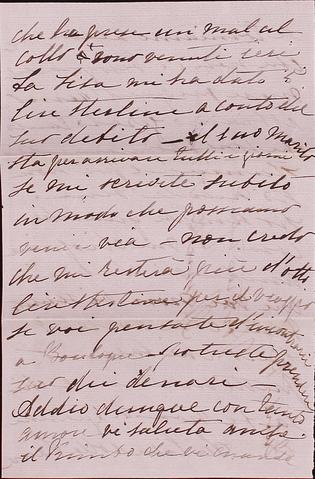 che ha preso un mal al
collo e sono venuti ieri
La Sisa mi ha dato 5
lire sterline a conto del
suo debito – il suo marito
sta per arrivare tutti i giorni
se mi scrivete subito
in modo che possiamo
venir via – non credo
che mi resterà più d'otto
lire sterline per il viaggio
se voi pensate d'incontrarci
a potreste prendere
dei denari –
Addio dunque con tanto
amore vi saluta anche
il bimbo che vi manda